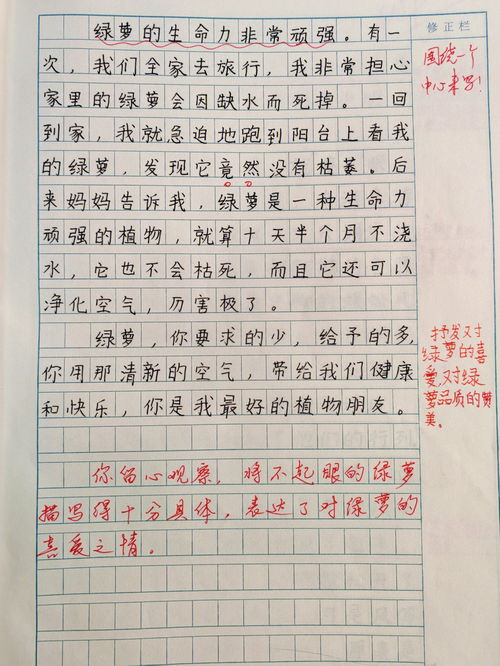 修正栏
绿萝的生命力非常顽强。有一
次，我们全家去旅行，我非常担心
家里的绿萝会因缺水而死掉。一回
到家，我就急迫地跑到阳台上看我
的绿萝，发现它竟然没有枯萎。后
来妈妈告诉我，绿萝是一种生命力
顽强的植物，就算十天半个月不浇
水，它也不会枯死，而且它还可以
净化空气，厉害极了。
绿萝，你要求的少，给予的多，
你用那清新的空气，带给我们健康
和快乐，你是我最好的植物朋友。
你留心观察，将不起眼的绿萝
描写得十分具体，表达了对绿萝的
喜爱之情。
围绕一个
中心来写！
抒发对
绿萝的喜
爱，对绿
萝品质的赞
美。